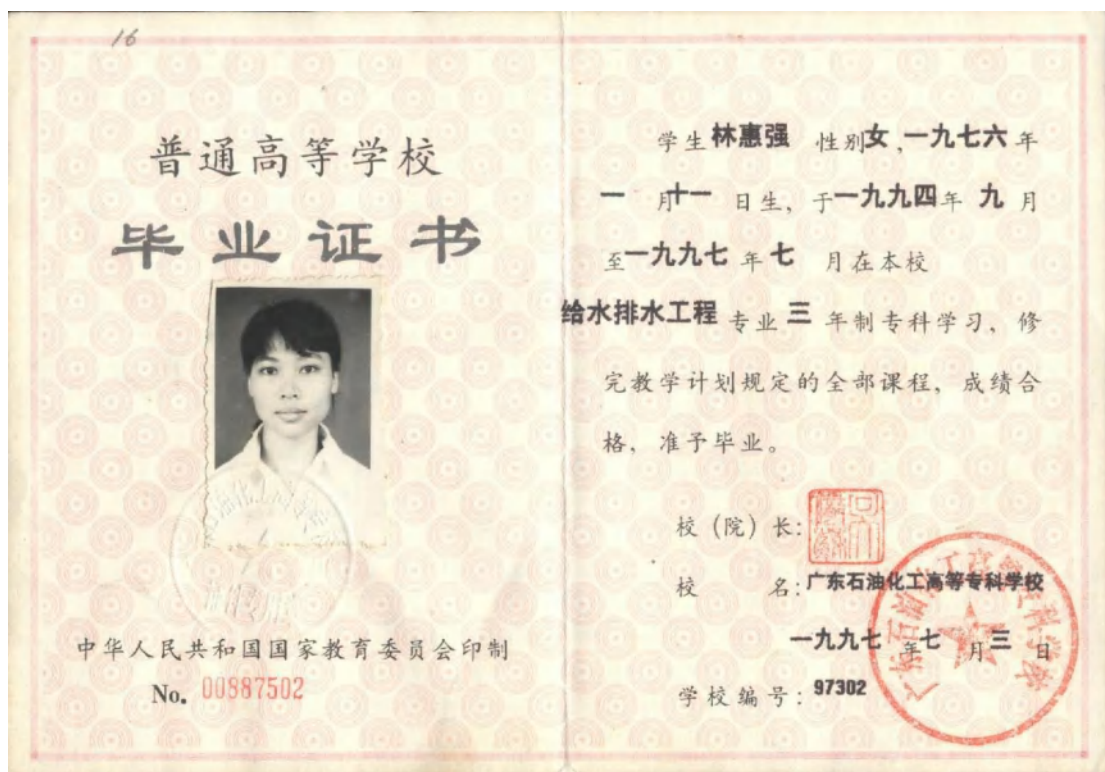 16
普通高等学校
毕业证书
中华人民共和国国家教育委员会印制
No. 00887502
学生 林惠强 性别女,一九七六年
一月十一日生, 于一九九四年九月
至一九九七年七月在本校
给水排水工程 专业 三 年制专科学习, 修
完教学计划规定的全部课程, 成绩合
格, 准予毕业。
校（院）长:
校 名: 广东石油化工高等专科学校
一九九七年七月三日
学校编号: 97302
广东石油化工高等专科学校